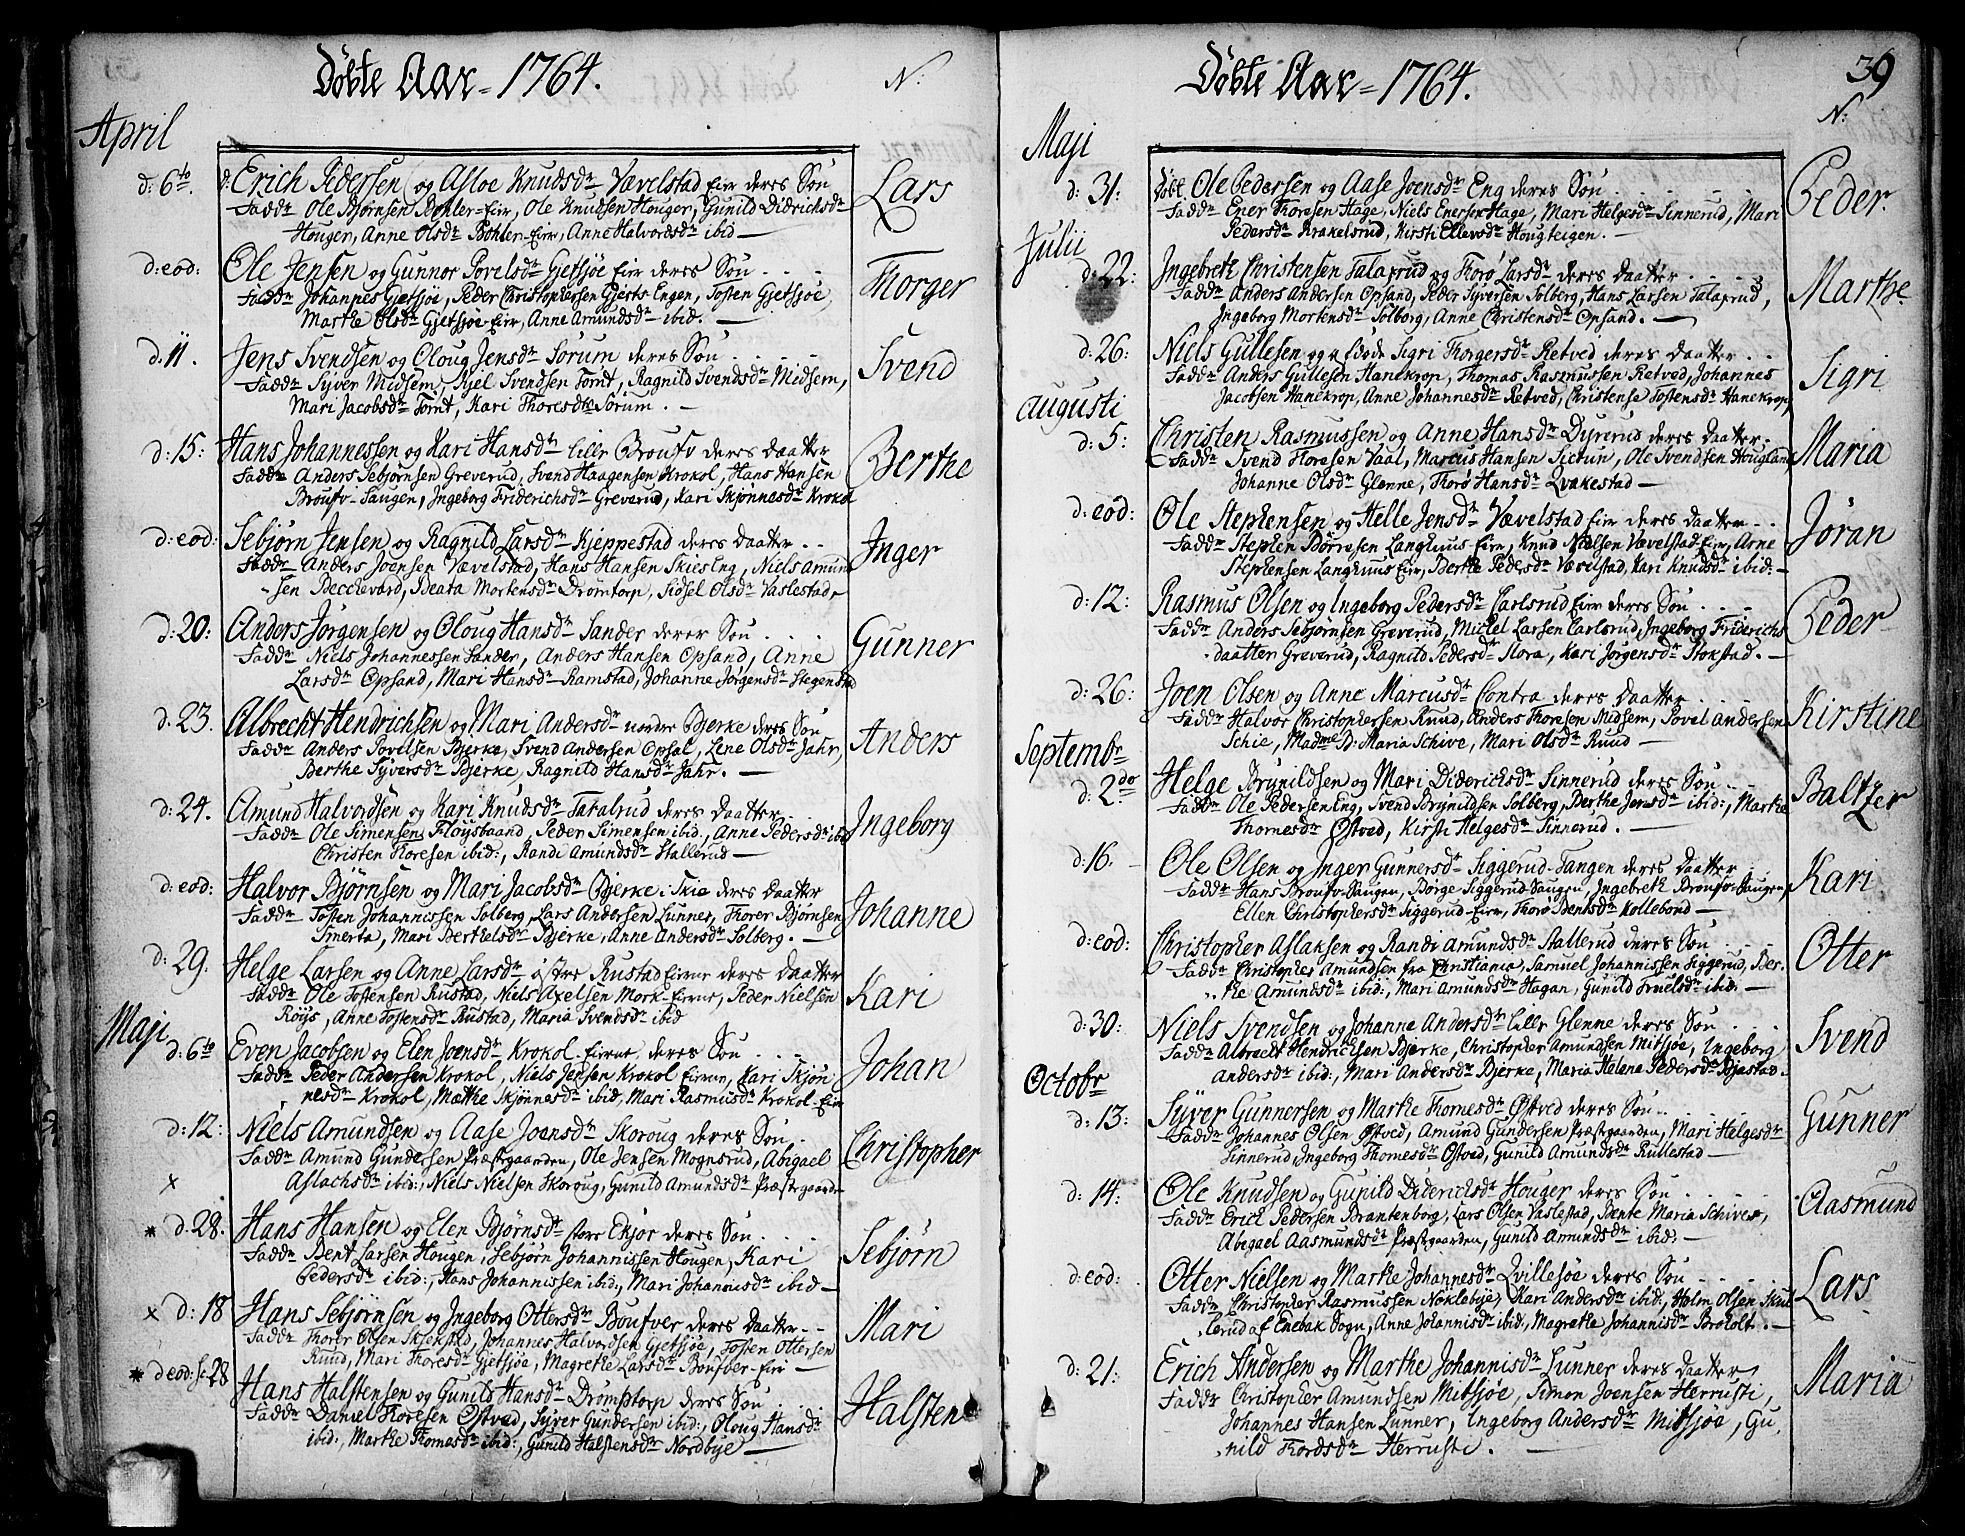 Døbte Aar = 1764.
N:
April
d: 6te. d: Erich Pedersen og Asloe Knudsdr Vævelstad Eier deres Søn
Lars
Faddr Ole Bjørnsen Bøhler-Eier, Ole Knudsen Houger, Gunild Didrichsdr
Houger, Anne Olsdr Bøhler-Eier, Anne Halvordsdr ibid
d: eod: Ole Jensen og Gunnor Povelsdr Gjetsjøe Eier deres Søn
Thorger
Faddr Johannes Gjetsjøe, Peder Christophersen Gjerts Engen, Tosten Gjetsjøe,
Marthe Olsdr Gjetsjøe Eier, Anne Amundsdr ibid.
d: 11. Jens Svendsen og Oloug Jensdr Sørum deres Søn
Svend
Faddr Syver Midsem, Kjel Svendsen Tomt, Ragnild Svendsdr Midsem,
Mari Jacobsdr Tomt, Kari Thoresdr Sørum.
d: 15: Hans Johannessen og Kari Hansdr lille Broufv deres Daatter
Berthe
Faddr Anders Sebjørnsen Greverud, Svend Haagensen Krokol, Hans Hansen
Broufv-Saugen, Ingeborg Friderichsdr Greverud, Kari Skjønnesdr Krokol
d: eod: Sebjørn Jensen og Ragnild Larsdr Kjeppestad deres Daatter
Inger
Faddr Anders Joensen Vævelstad, Hans Hansen Skieseng, Niels Amund
sen Becchevard, Beata Mortensdr Drømtorp, Sidsel Olsdr Vaslestad
d: 20: Anders Jørgensen og Oloug Hansdr Sander deres Søn
Gunner
Faddr Niels Johannessen Sander, Anders Hansen Opsand, Anne
Larsdr Opsand, Mari Hansdr Ramstad, Johanne Jørgensdr Stegenstad
d: 23. Albrecht Hendrichsen og Mari Andersdr nordre Bjerke deres Søn
Anders
Faddr Anders Povelsen Bjerke, Svend Andersen Opsal, Lene Olsdr Jahr,
Berthe Syversdr Bjerke, Ragnild Hansdr Jahr.
d: 24. Amund Halvordsen og Kari Knudsdr Tafalrud deres Daatter
Ingeborg
Faddr Ole Simensen Fløysbaand, Peder Simensen ibid., Anne Pedersdr ibid
Christen Thoresen ibid:, Randi Amundsdr Stallerud
d: eod: Halvor Bjørnsen og Mari Jacobsdr Bjerke i Skie deres Daatter
Johanne
Faddr Tosten Johannissen Solberg, Lars Andersen Lunner, Thorer Bjørnsen
Smerta, Mari Berthelsdr Bjerke, Anne Andersdr Solberg.
d: 29. Helge Larsen og Anne Larsdr østre Rustad Eierne deres Daatter
Kari
Faddr Ole Tostensen Rustad, Niels Axelsen Mork-Eierne, Peder Nielsen
Røys, Anne Tostensdr Rustad, Maria Svendsdr ibid
Maji
d: 6te Even Jacobsen og Elen Joensdr Krokol Eierne, deres Søn
Johan
Faddr Peder Andersen Krokol, Niels Jensen Krokol Eierne, Kari Skjøn
nesdr Krokol, Mætthe Skjønnesdr ibid, Mari Rasmusdr Krokol-Eier
d: 12: Niels Amundsen og Aase Joensdr Skoroug deres Søn
Christopher
Faddr Amund Gundersen Præstgaarden, Ole Jensen Mognsrud, Abigael
x Aslachsdr ibid:, Niels Nielsen Skoroug, Gunild Amundsdr Præstgaarden
* d: 28. Hans Hansen og Elen Bjørnsdr store Ekjør deres Søn
Sebjørn
Faddr Bent Larsen Hougen, Sebjørn Johannissen Hougen, Kari
Pedersdr ibid:, Hans Johannissen ibid:, Mari Johannisdr ibid
x d: 18 Hans Sebjørnsen og Ingeborg Ottersdr Boufver deres Daatter
Mari
Faddr Thorer Olsen, Johannes Halvordsen Gjetsjøe, Tosten Ottersen
Ruud, Mari Thoresdr Gjetsjøe, Magrethe Larsdr Boufver-Eier
* d eod: 28 Hans Halstensen og Gunild Hansdr Drømptorp deres Søn
Halsten
Faddr Daniel Thoresen Østved, Syver Gundersen ibid:, Oloug Hansdr
ibid:, Marthe Thomesdr ibid:, Gunild Halstensdr Nordbye
Døbte Aar = 1764.
39
N:
Maji
d: 31. Døbt Ole Pedersen og Aase Joensdr Eng deres Søn
Peder.
Faddr Ener Thoresen Hage, Niels Enersen Hage, Mari Helgesdr Sinnerud, Mari
Pedersdr Krakelsrud, Kirsti Ellevsdr Hougteigen.
Julii
d: 22: Ingebreth Christensen Talaxrud og Thorø Larsdr deres Daatter
Marthe
Faddr Anders Andersen Opsand, Peder Syversen Solberg, Hans Larsen Talaxrud,
Ingeborg Mortensdr Solborg, Anne Christensdr Opsand.
d: 26: Niels Gullesen og Sigri Thorgersdr Retved deres Daatter
Sigri
Faddr Anders Gullesen Hanekrop, Thomas Rasmussen Retved, Johannes
Jacobsen Hanekrop, Anne Johannesdr Retved, Christense Tostensdr Hanekrop,
Augusti
d: 5: Christen Rasmussen og Anne Hansdr Dyrerud deres Daatter
Maria
Faddr Svend Thoresen Vaal, Marcus Hansen Sictun, Ole Svendsen Hougland
Johanne Olsdr Glenne, Thorø Hansdr Qvakestad
d: eod: Ole Stephensen og Helle Jensdr Vævelstad Eier deres Daatter
Jøran
Faddr Stephen Børresen Langhuus-Eier, Knud Nielsen Vævelstad-Eier, Arne
Stephensen Langhuus Eier, Berthe Pedersdr Vævelstad, Kari Knudsdr ibid:
d: 12: Rasmus Olsen og Ingeborg Pedersdr Carlsrud Eier deres Søn
Peder
Faddr Anders Sebjørnsen Greverud, Michel Larsen Carlsrud, Ingeborg Friderichs
daatter Greverud, Ragnild Pedersdr Flora, Kari Jørgensdr Stokstad.
d: 26: Joen Olsen og Anne Marcusdr Contra deres Daatter
Kirstine
Faddr Halvor Christophersen Ruud, Anders Thoresen Midsem, Povel Andersen
Schie, Madme D: Maria Schive, Mari Olsdr Ruud
Septembr
d: 2do Helge Brynildsen og Mari Diderichsdr Sinnerud deres Søn
Baltzer
Faddr Ole Pedersen Eng, Svend Brynildsen Solberg, Berthe Jensdr ibid:, Marthe
Thomesdr Østved, Kirsti Helgesdr Sinnerud.
d: 16. Ole Olsen og Inger Gunnersdr Siggerud-Tangen deres Daatter
Kari
Faddr Hans Broufv-Saugen, Børge Siggerud-Saugen, Ingebreth Broufv-Saugen,
Ellen Christophersdr Siggerud-Eier, Thorø Bentsdr Kollebond
d: eod: Christopher Aslaksen og Randi Amundsdr Stallerud deres Søn
Otter
Faddr Christopher Amundsen fra Christiania, Samuel Johannissen Siggerud, Ber-
the Amundsdr ibid:, Mari Amundsdr Hagan, Gunild Truelsdr ibid:
d: 30: Niels Svendsen og Johanne Andersdr lille Glenne deres Søn
Svend
Faddr Albrecht Hendrichsen Bjerke, Christopher Amundsen Mitsjøe, Ingeborg
Andersdr ibid:, Mari Andersdr Bjerke, Maria Helena Pedersdr Bjastad.
Octobr
d: 13: Syver Gunnersen og Marthe Thomesdr Østved deres Søn
Gunner
Faddr Johannes Olsen Østved, Amund Gundersen Præstgaarden, Mari Helgesdr
Sinnerud, Ingeborg Thomesdr Østved, Gunild Amundsdr Rullestad
d: 14: Ole Knudsen og Gunild Diderichsdr Houger deres Søn
Aasmund
Faddr Erich Pedersen Brantenborg, Lars Olsen Vaslestad, Bente Maria Schives,
Abigael Aasmundsdr Præstgaarden, Gunild Amundsdr ibid:
d: eod: Otter Nielsen og Marthe Johannesdr Qvillesøe deres Søn
Lars
Faddr Christopher Rasmussen Nøklebye, Kari Andersdr ibid:, Holm Olsen Skul
lerud af Enebak Sogn, Anne Johannisdr ibid:, Magrethe Johannisdr Brokolt.
d: 21: Erich Andersen og Marthe Johannisdr Lunner deres Daatter
Maria
Faddr Christopher Amundsen Mitsjøe, Simon Joensen Herrusti,
Johannes Hansen Lunner, Ingeborg Andersdr Mitsjøe, Gu,
nild Thordsdr Herrusti.